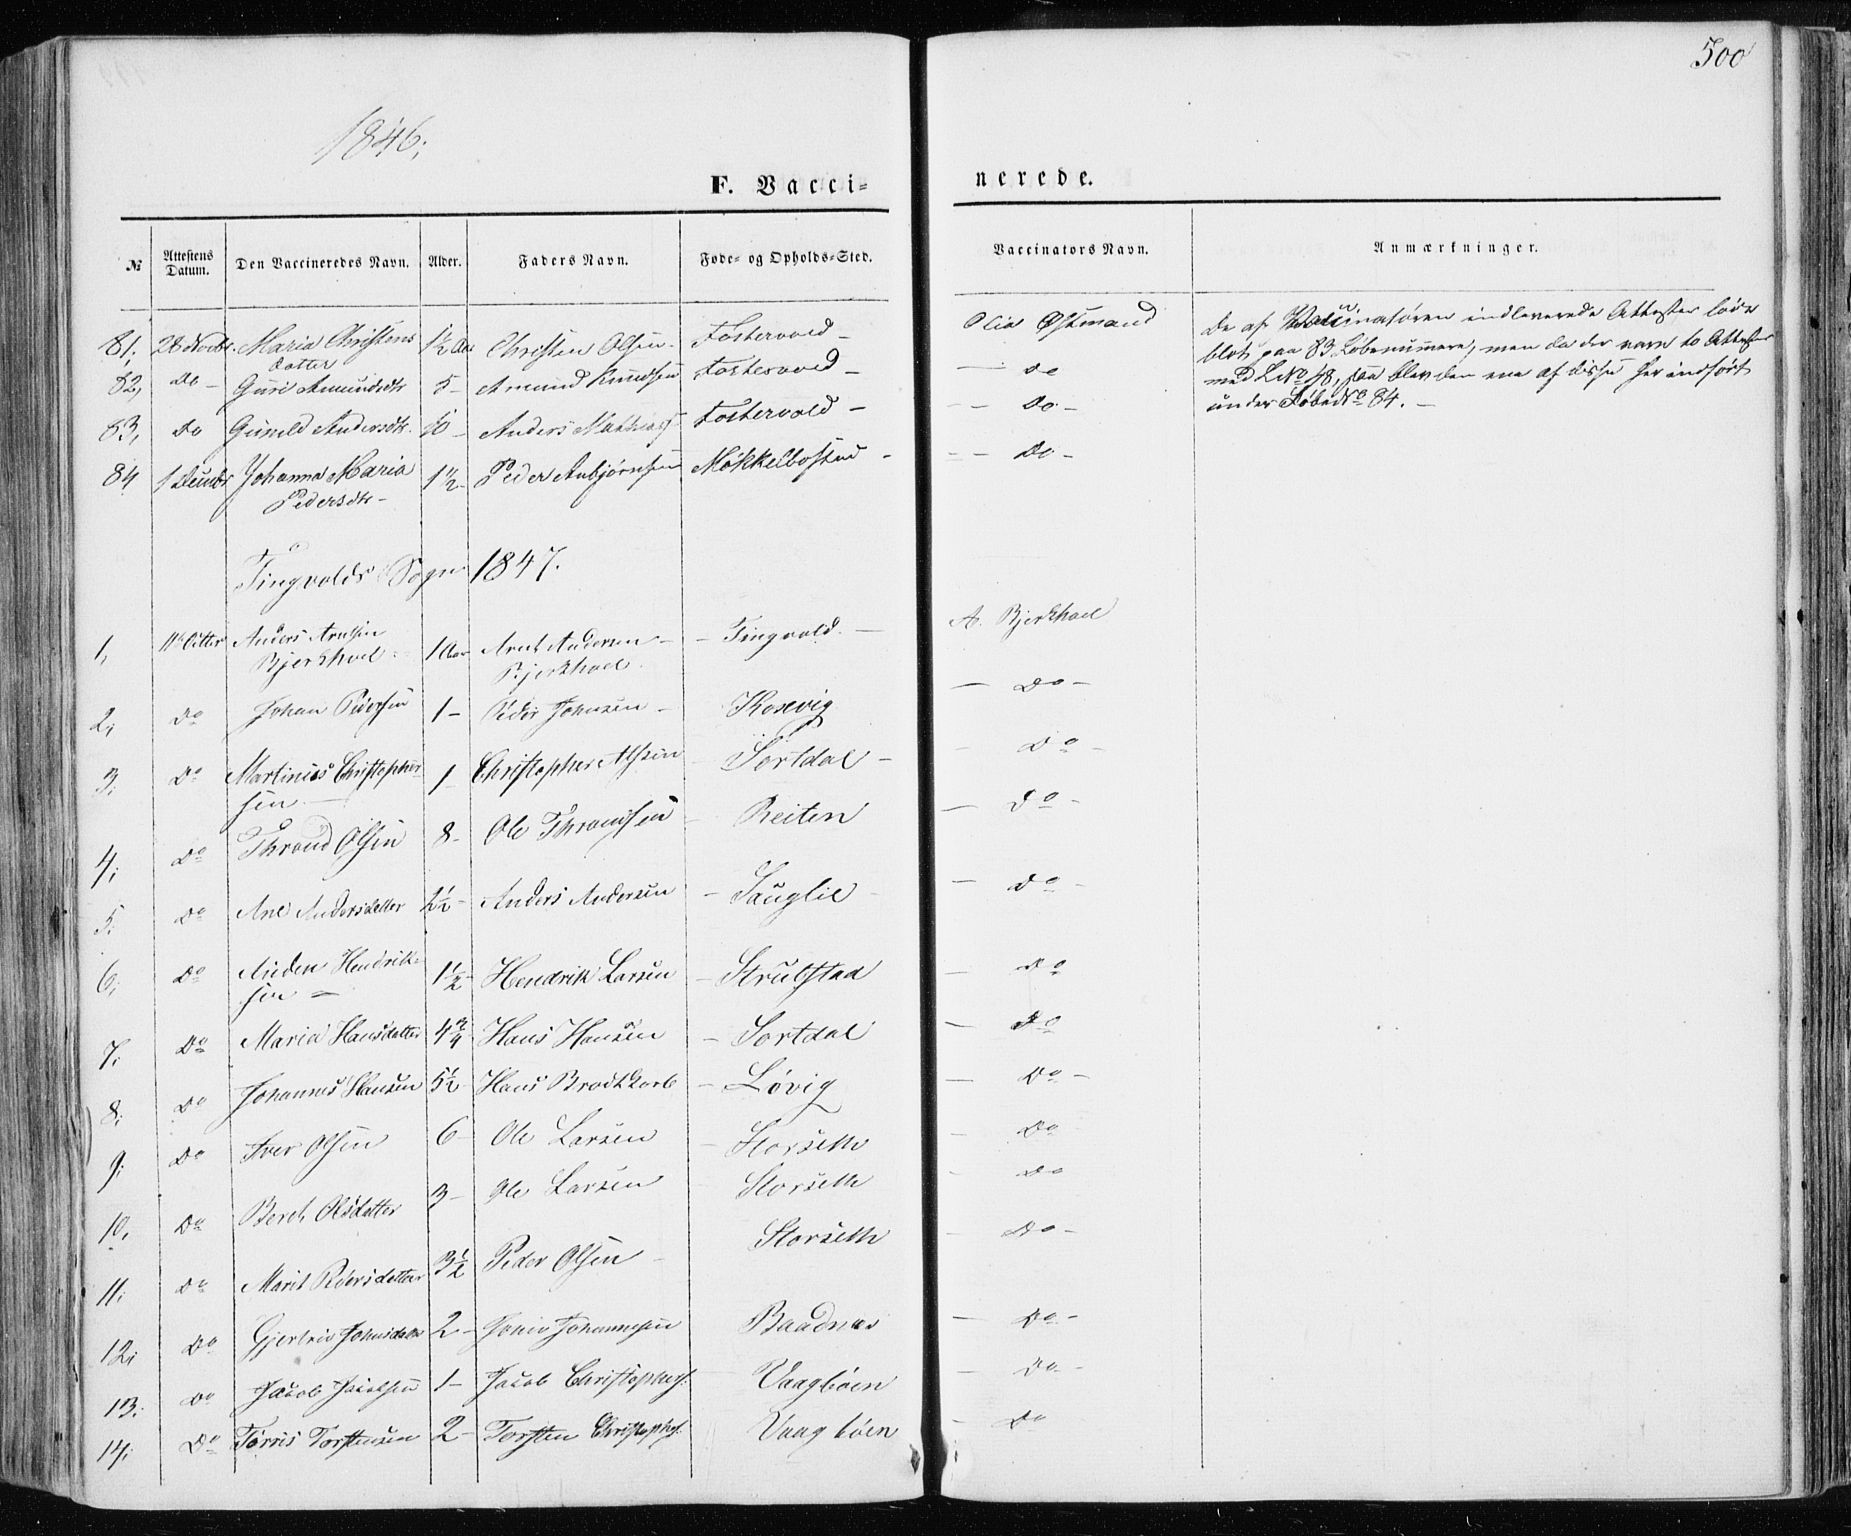 500
1846;
F. Vacci=
nerede.
№ Attestens Datum. Den Vaccineredes Navn. Alder. Faders Navn. Føde= og Opholds=Sted. Vaccinators Navn. Anmærkninger.
81, 28 Novbr. Maria Christens 1½ Aar Christen Olsen - Fostervold - Olia Østmand
datter
82, Do - Guri Amundsdtr 5 - Amund Knudsen Fostervold - - do
83, Do Gunild Andersdtr. 10 - Anders Mathias Fostervold - - Do -
84 1 Decmbr Johanna Maria 1½ - Peder Anbjørnsen Mökkelbostad - - Do -
Pedersdtr -
De af Vaccinatøren indleverede Attester løde
blot paa 83 Løbenummere, men da der vare to Attester
med L No 48, saa blev den ene af disse her indført
under Løbe No 84. -
Tingvolds Sogn 1847.
1, 11te Octbr Anders Arntsen 1 Aar Arnt Andersen - - Tingvold. - A. Bjerkhoel
Bjerkhoel Bjerkhoel
2, do Johan Pedersen 1 - Peder Johnsen - Kosevig - Do -
3, Do Martinus Christopher 1 - Christopher Olsen Sortdal - - Do -
sen -
4, Do Thrond Olsen 8 - Ole Thronsen - Reiten - Do -
5, Do Ane Andersdatter 2½ - Anders Andersen - Sauglie - - Do -
6, Do Hendrik 1½ - Hendrik Larsen - Strutstad - Do
sen -
7, Do Maria Hansdatter 4¾ Hans Hansen - Sortdal - Do
8, Do Johannes Hansen 5½ Hans Brodtkorb - Løvig - Do -
9, Do Iver Olsen 6 - Ole Larsen - Storseth - Do
10, Do Bereth Olsdatter 3 - Ole Larsen Storseth - Do
11, Do Marit Pedersdatter 3½ Peder Olsen - Storseth - Do -
12, Do Gjertrud Johnsdatter 2 - Johannesen Baadnæs - Do -
13, Do Jacob Jacobsen 1 - Jacob Christophers. Vaagbøen - Do -
14, Do Tørris Torstensen 2 - Torsten Christophers. Vaagbøen - Do